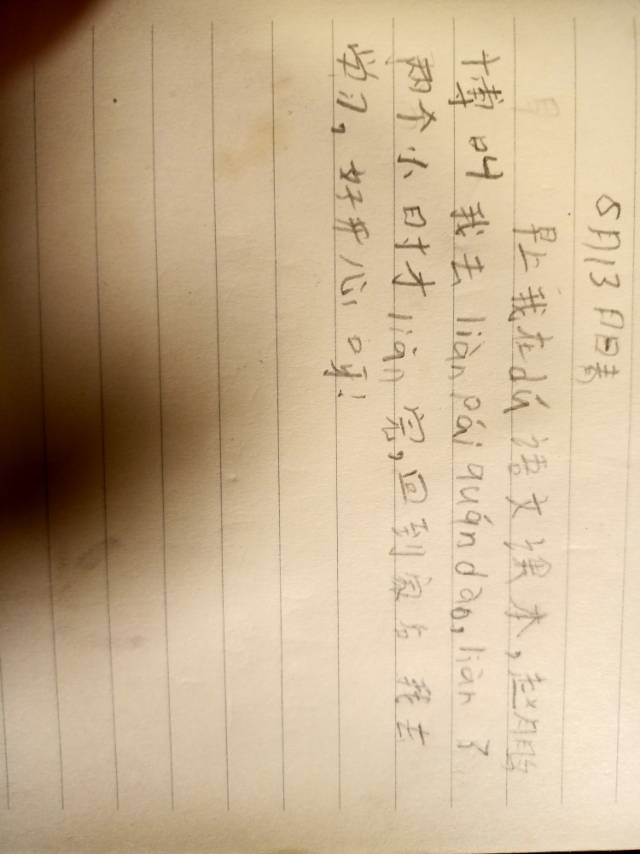 5月13日日素
早上我在dú语文课本，赵月鹏
博叫我去liàn pái quán dào, liàn了
两个小时才liàn完，回到家后我去
学习，好开心呀！